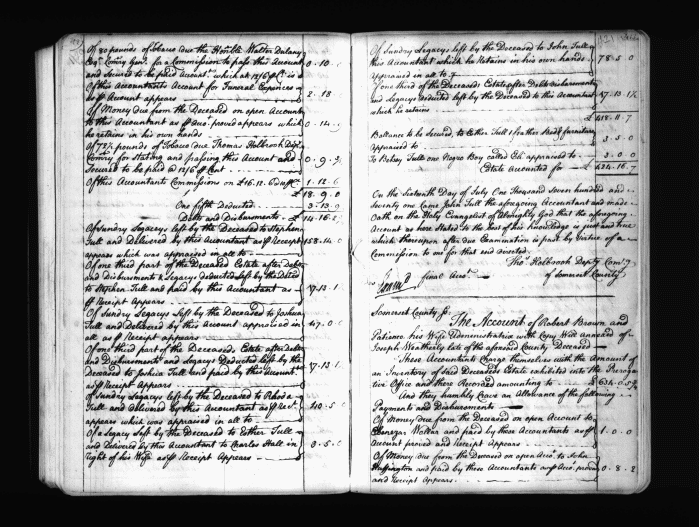 Of 80 pounds of Tobacco due the Honble Walter Dulany
Esqr Comry Genl. for a Commission to pass this Account
and Secured to be paid Accot. which at 12/6 Ct. is a 0..10..0
Of this Accountants Account for Funeral Expences
as Account appears 2..18
Of Money due from the Deceased on open Account
to this Accountant as proved appears which
he retains in his own hands 0..14
Of 75 pounds of Tobacco due Thomas Holbrook Depy
Comry for Stating and passing this Account and
Secured to be paid at 12/6 Cent 0..9
Of this Accountants Commissions on £16.12 1..12
£ 18..9..0
One fifth Deducted 3..13
Debts and Disbursements £ 14..16
Of Sundry Legacys left by the Deceased to Stephen
Tull and Delivered by this Accountant as Receipt 158..14
appears which was appraised in all to
Of one third part of the Deceased Estate after Debts
and Disbursements & Legacys deducted left by the Deced
to Stephen Tull and paid by this Accountant as
Receipt Appears 47..13..1
Of Sundry Legacys left by the Deceased to Joshua
Tull and Delivered by this Account appraised in
all as Receipt appears 47..0
Of one third part of the Deceaseds Estate after Debts
and Disbursements and Legacys Deducted left by the
Deceased to Joshua Tull and paid by this Accountant
as Receipt Appears 47..13..1
Of Sundry Legacys left by the Deceased to Rhoda
Tull and Delivered by this Accountant as Rect. 40..5
appears which was appraised in all to
Of a Legacy left by the Deceased to Esther Tull
and Delivered by this Accountant to Charles Hall in
right of his Wife as Receipt Appears 0..5
Of Sundry Legacys left by the Deceased to John Tull
this Accountant which he Retains in his own hands 78..5..0
appraised in all to
Of one third of the Deceaseds Estate after Debts Disbursements
and Legacys deducted left by the Deceased to this Accountant 47..13..1½
which he retains
£ 418..11..7
Ballance to be Secured, to Esther Tull 1 furniture
appraised to 3..5..0
To Betsey Tull one Negro Boy called appraised to 3..0..0
Estate Accounted for £ 424..16..7
On the Sixteenth Day of July One thousand Seven hundred and
Seventy one Came John Tull the aforegoing Accountant and made
Oath on the Holy Evangelist of Almighty God that the aforegoing
Account as here Stated to the best of his Knowledge is just and true
which thereupon after due Examination is past by Virtue of a
Commission to me for that end directed
Thos. Holbrook Deputy Comry
Examd final Acct. of Somerset County
Somerset County Ss.
The Account of Robert Brown and
Patience his Wife Administratrix with Copy Will annexed of
Joseph Weatherly late of the aforesaid County Deceased
These Accountants Charge themselves with the Amount of
an Inventory of Said Deceaseds Estate exhibited into the Preroga
tive Office and there Recorded amounting to £ 634..0..5½
And they humbly Crave an allowance of the following
Payments and Disbursements
Of Money due from the Deceased on open Account to
Ebenezar Waller and paid by these Accountants as 1..0..0
Account proved and Receipt Appears
Of Money due from the Deceased on open Acco. to John
Huffington and paid by these Accountants as Acco. proved 0..8..2
and Receipt Appears